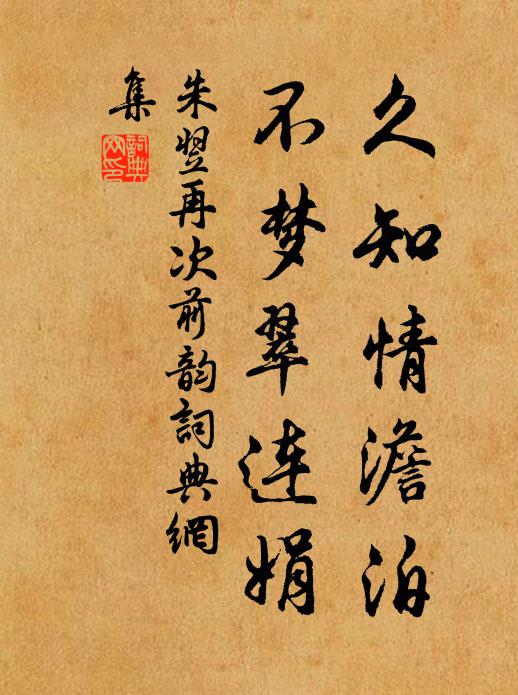 久知情澹泊
不梦翠连娟
朱翌再次前韵詞典網
集
詞典
网印